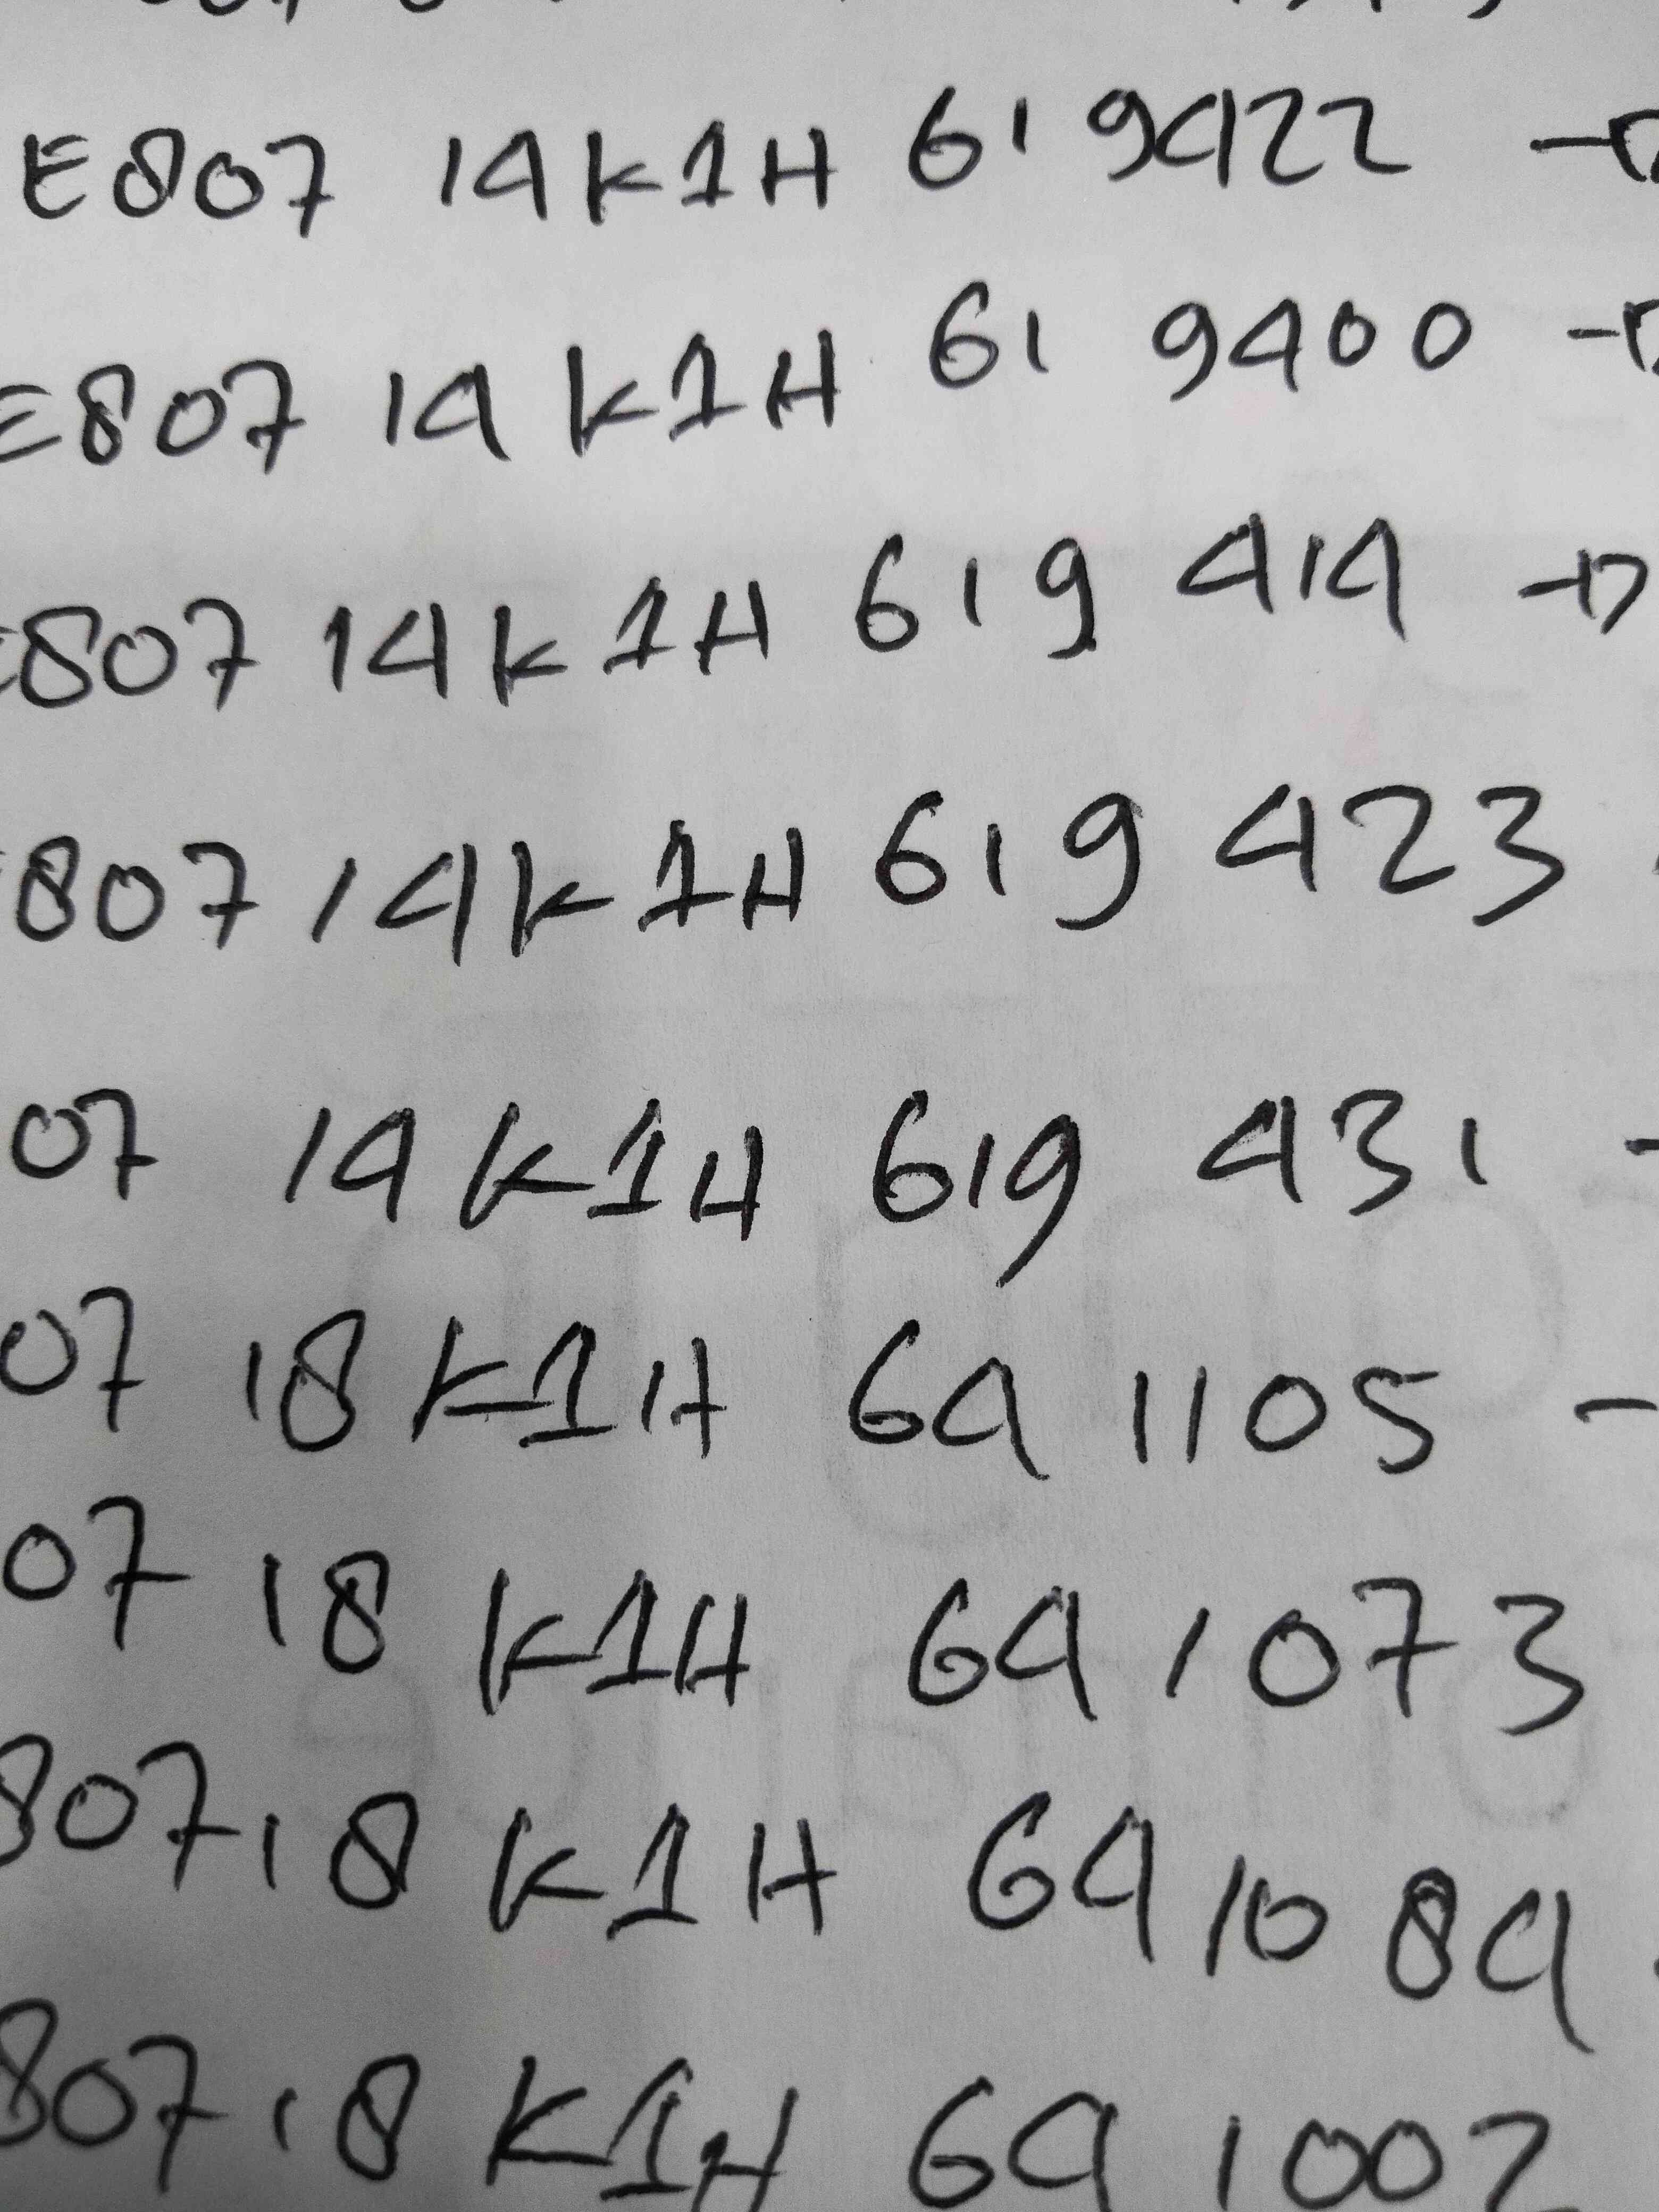 E807 14K1H 619422 →
E807 14K1H 619400 →
E807 14K1H 619 414 →
807 14K1H 619 423
07 14K1H 619 431 -
07 18K1H 64 1105 -
07 18K1H 64 1073
807 18K1H 64 1084
807 18K1H 64 1002